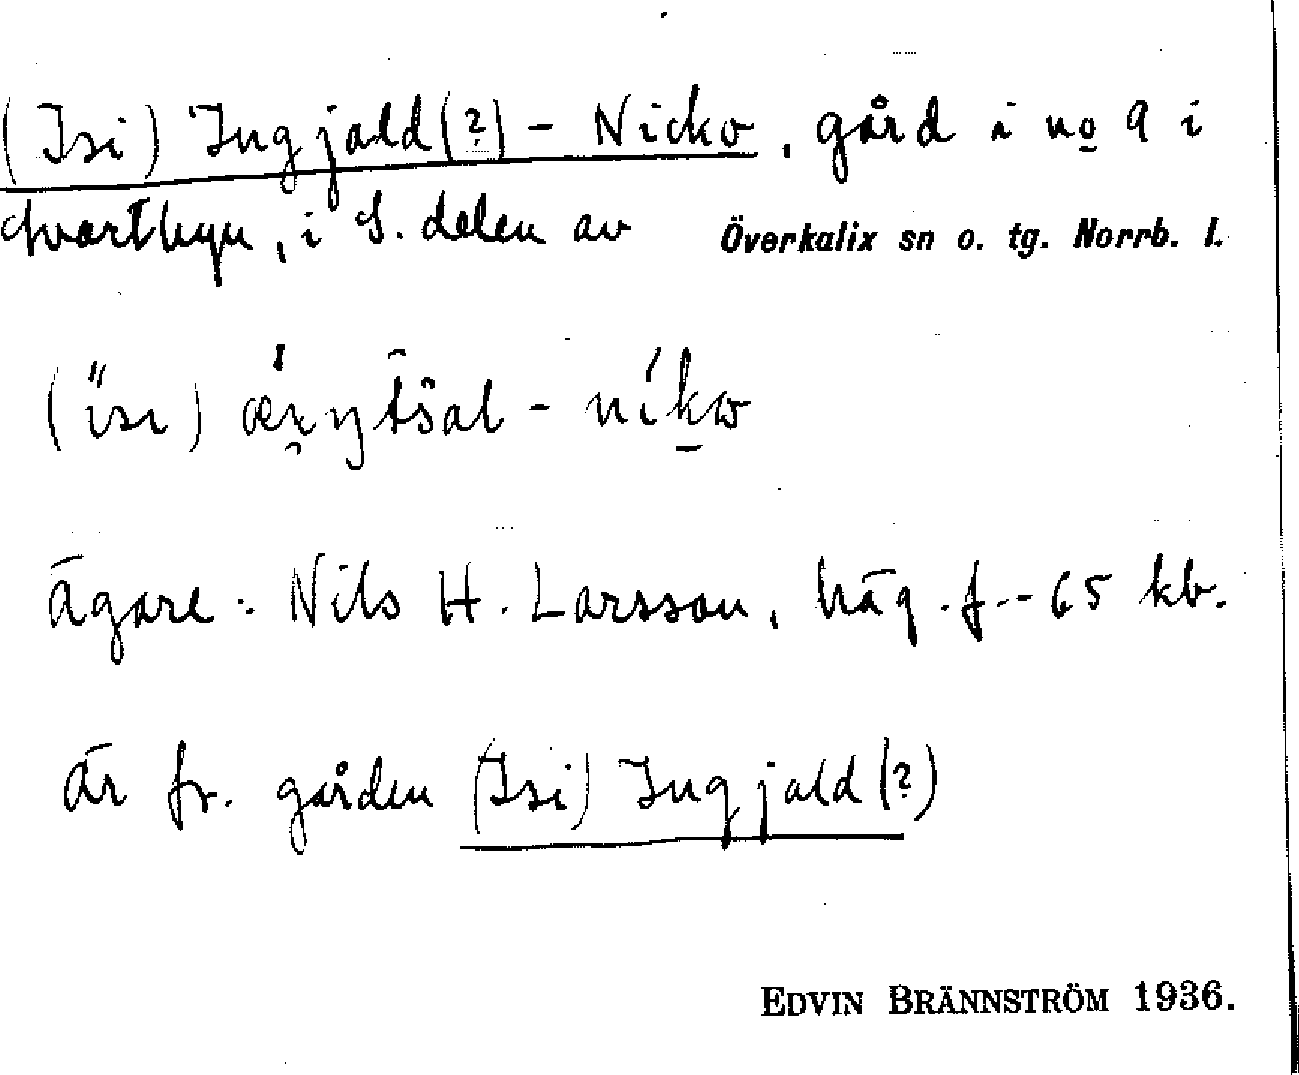 (Isi) Ingjald(?) - Nicko, gård i no 9 i
Svartbyn, i S. delen av Överkalix sn o. tg. Norrb. l.
ägare: Nils H. Larsson, häg. f. -65 kb.
är fr. gården (Isi) Ingjald(?)
EDVIN BRÄNNSTRÖM 1936.